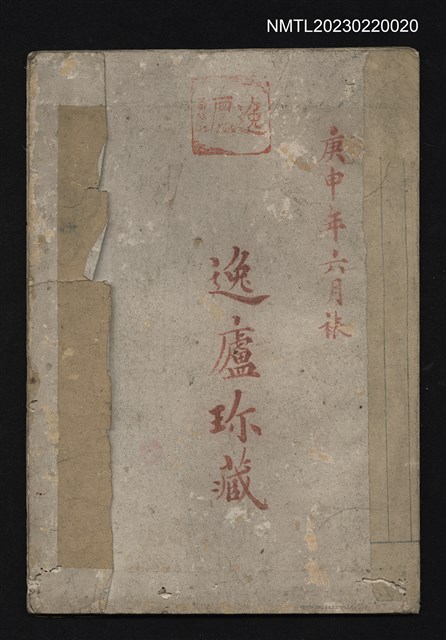 NMTL20230220020
庚申年六月裱
逸廬珍藏